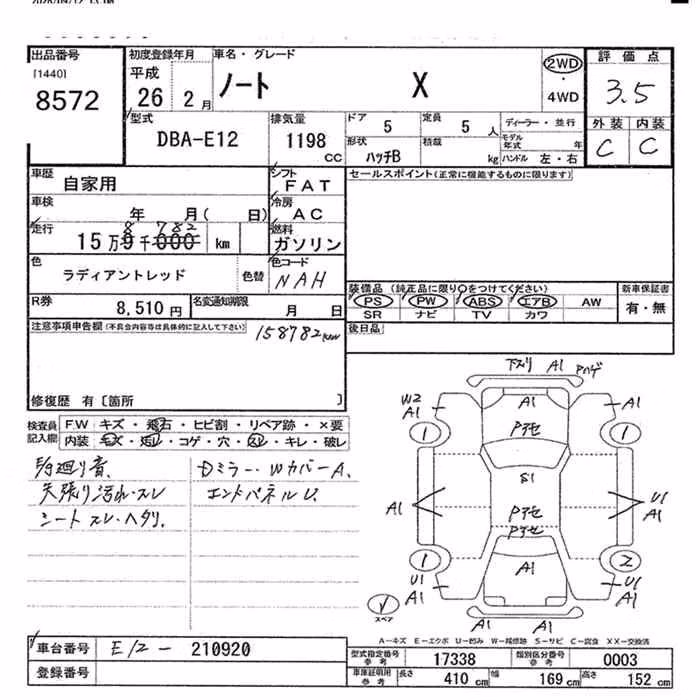 出品番号 初度登録年月 車名・グレード 評価点
[1440] 平成 ノート X 2WD
8572 26 2月 ・ 3.5
4WD
型式 排気量 ドア 5 定員 5人 ディーラー・並行 外装 内装
DBA-E12 1198 CC 形状 ハッチB 積載 kg モデル年式 年 C C
ハンドル 左・右
車歴 自家用 シフト FAT セールスポイント(正常に機能するものに限ります)
車検 年 月( 日) 冷房 AC
走行 15万8千782 km 燃料 ガソリン
色 ラディアントレッド 色替 色コード NAH
装備品(純正品に限り○をつけてください) 新車保証書
R券 8,510円 名変通知期限 月 日 PS PW ABS エアB AW 有・無
SR ナビ TV カワ
注意事項申告欄(不具合内容等は具体的に記入して下さい) 後日品
158782km
修復歴 有〔箇所 〕
検査員 F.W キズ・飛石・ヒビ割・リペア跡・×要
記入欄 内装 キズ・汚レ・コゲ・穴・スレ・キレ・破レ
廻り音. Dミラー・WカバーA.
天張り汚れ・スレ エンドパネルU.
シートスレ・ヘタリ.
下スリ A1 アハゲ
W2 A1 A1 A1
1 Pアセ 1
S1
A1 Pアセ U1 A1
Pアセ
1 A1 2
U1 A1 U1 A1
スペア A1 A1
A-キズ E-エクボ U-凹み W-補修跡 S-サビ C-腐食 XX-交換済
車台番号 E12-210920 型式指定番号 参考 17338 類別区分番号 参考 0003
登録番号 車庫証明用 参考 長さ 410 cm 幅 169 cm 高さ 152 cm